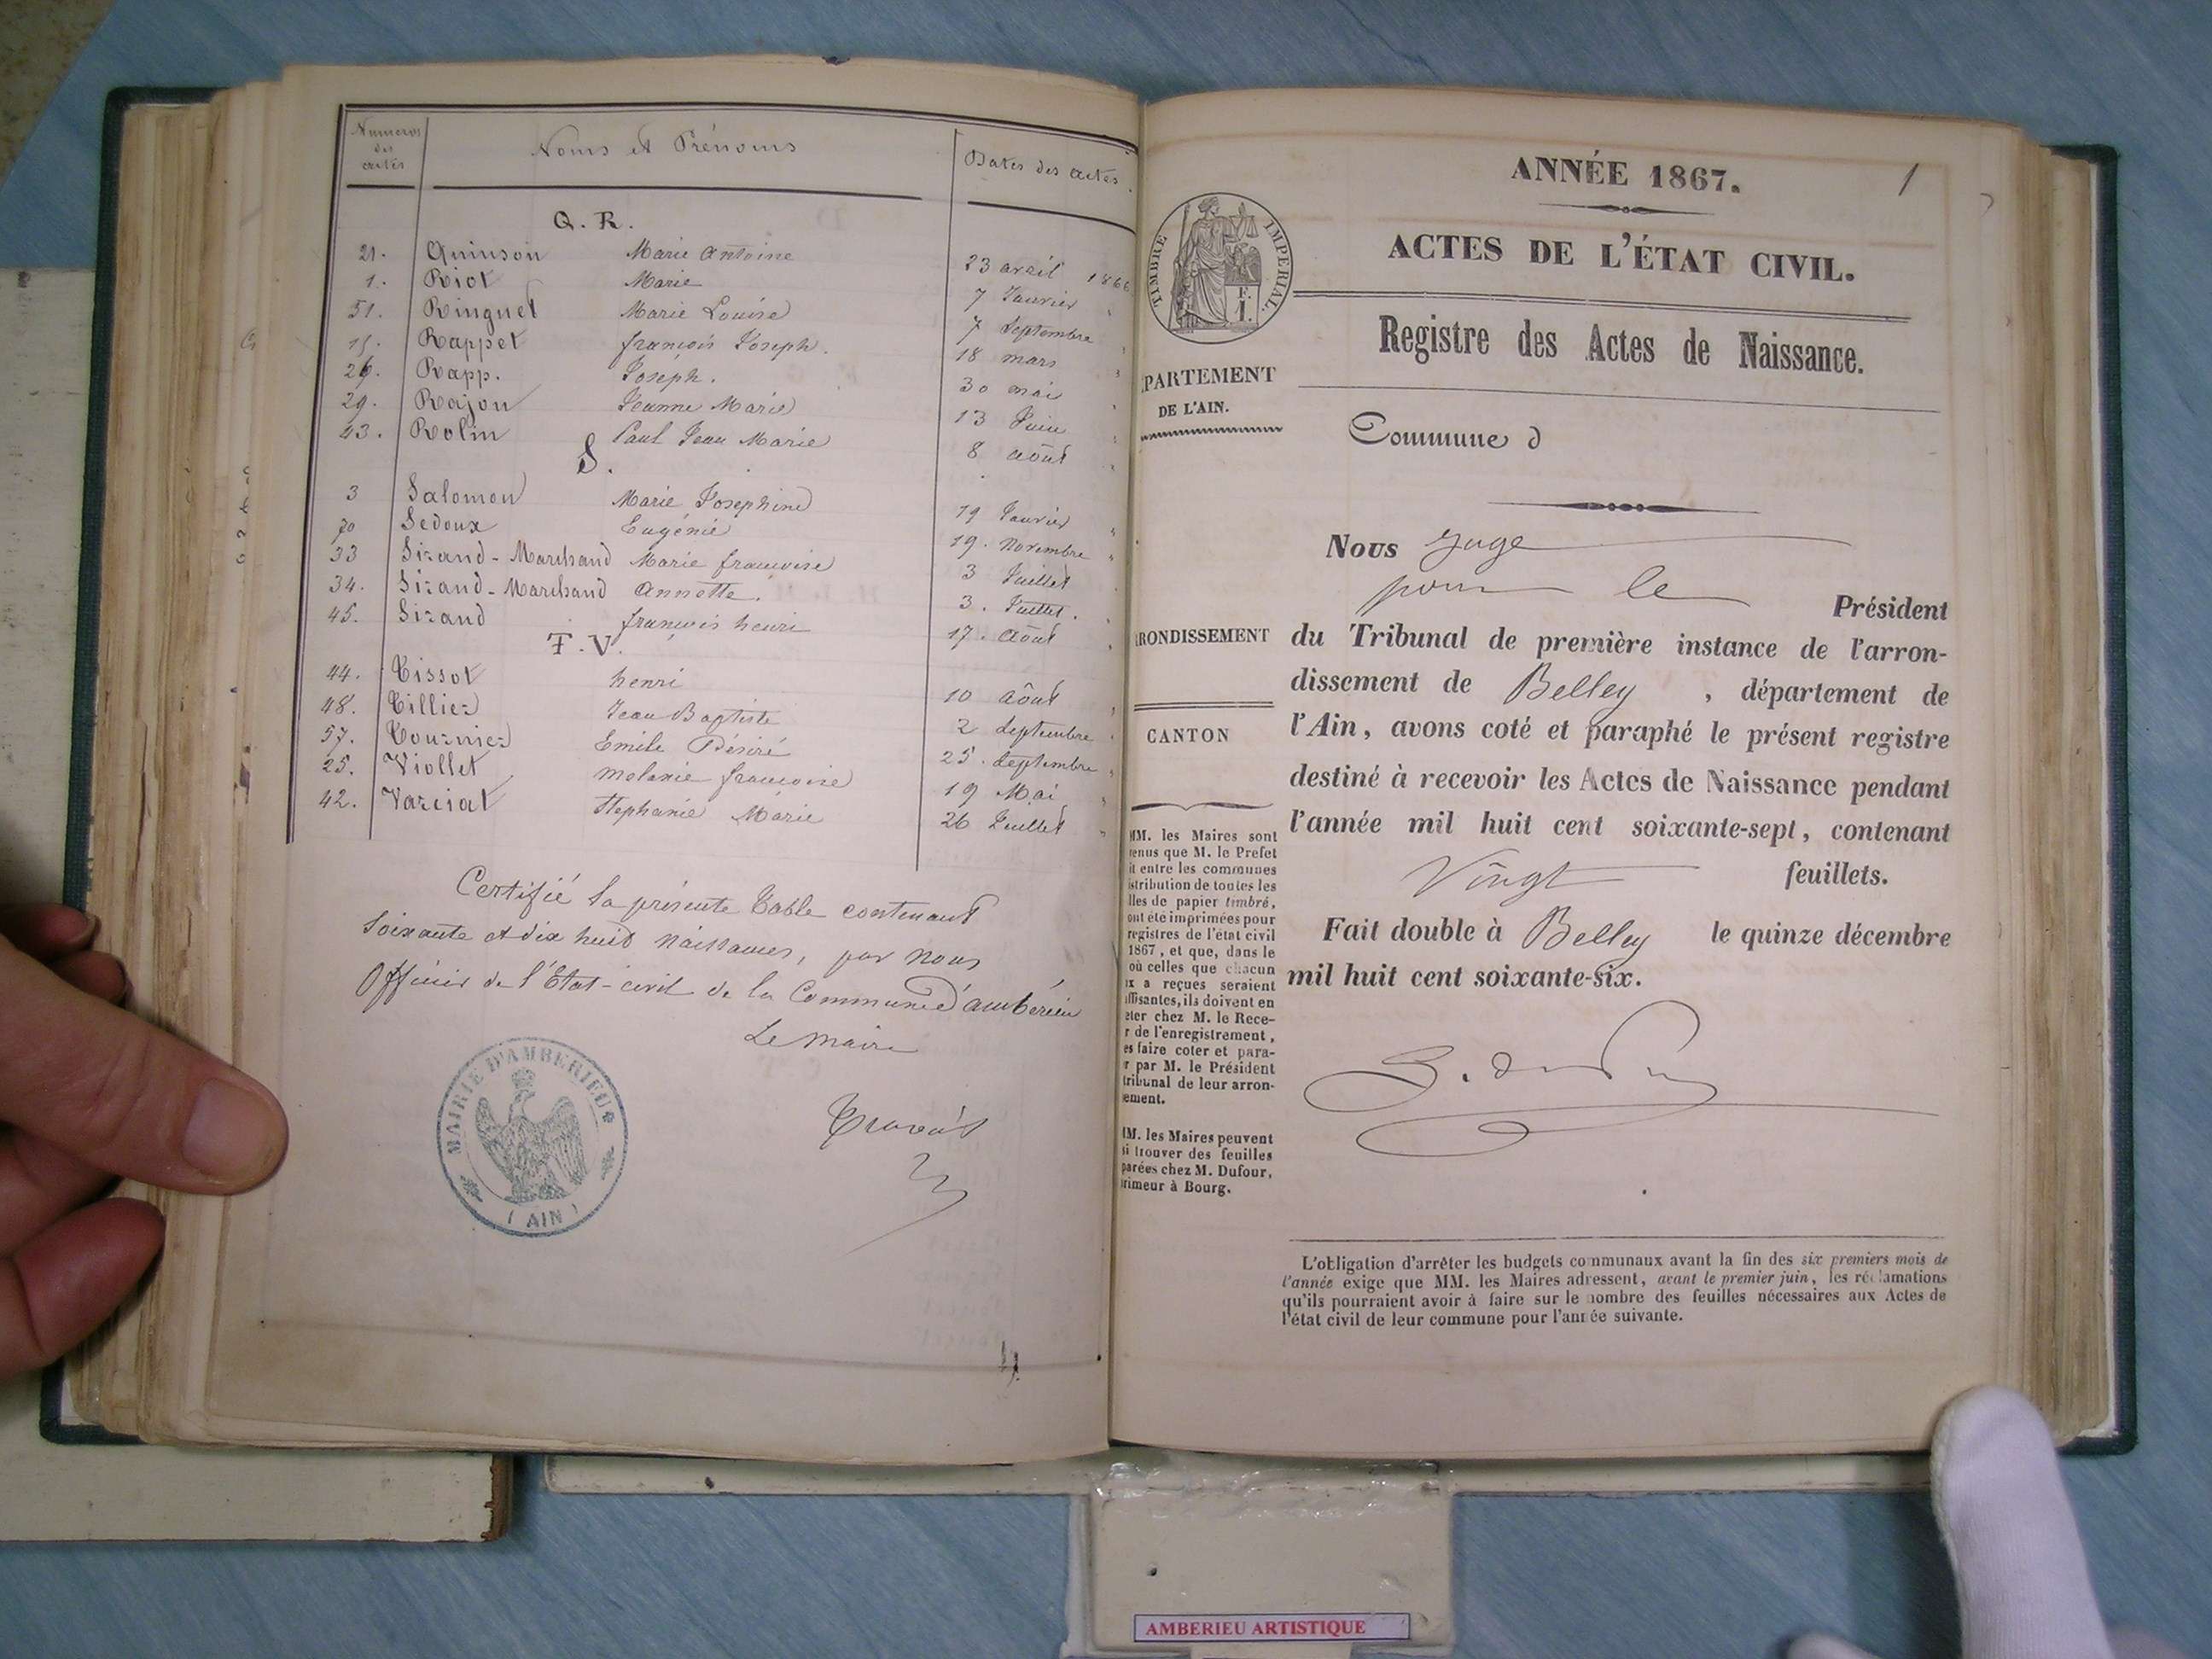 Numeros des actes
Noms et Prénoms
Dates des actes.
Q. R.
21. Quinson Marie Antoine 23 avril 1866
1. Riot Marie 7 Janvier "
51. Ringuet Marie Louise 7 Septembre "
15. Rappet françois Joseph. 18 mars "
26. Rapp. Joseph. 30 mai "
29. Rajon Jeanne Marie 13 Juin "
43. Rolin Paul Jean Marie 8 août "
S.
3 Salomon Marie Josephine 19 Janvier "
70 Sedoux Eugénie 19. Novembre "
33 Sirand-Marchand Marie françoise 3 Juillet "
34. Sirand-Marchand Annette. 3. Juillet. "
45. Sirand françois henri 17. Août "
T. V.
44. Tissot henri 10 Août "
48. Tillier Jean Baptiste 2 Septembre "
57. Tournier Emile Désiré 25. Septembre "
25. Viollet Melanie françoise 19 Mai "
42. Varciat Stephanie Marie 26 Juillet "
Certifié la présente Table contenant
Soixante et dix huit Naissances, par nous
Officier de l'État-civil de la Commune d'ambérieu
Le Maire
MAIRIE D'AMBERIEU
(AIN)
ANNÉE 1867.
1
ACTES DE L'ÉTAT CIVIL.
TIMBRE IMPERIAL.
F.
1.
Registre des Actes de Naissance.
PARTEMENT
DE L'AIN.
Commune d
Nous juge
pour le Président
RONDISSEMENT
du Tribunal de première instance de l'arron-
dissement de Belley , département de
CANTON
l'Ain, avons coté et paraphé le présent registre
destiné à recevoir les Actes de Naissance pendant
l'année mil huit cent soixante-sept, contenant
Vingt feuillets.
Fait double à Belley le quinze décembre
mil huit cent soixante-six.
MM. les Maires sont
enus que M. le Prefet
it entre les communes
istribution de toutes les
lles de papier timbré,
ont été imprimées pour
registres de l'état civil
1867, et que, dans le
où celles que chacun
ix a reçues seraient
ffisantes, ils doivent en
eter chez M. le Rece-
r de l'enregistrement,
es faire coter et para-
r par M. le Président
tribunal de leur arron-
ement.
IM. les Maires peuvent
si trouver des feuilles
parées chez M. Dufour,
rimeur à Bourg.
L'obligation d'arrêter les budgets communaux avant la fin des six premiers mois de
l'année exige que MM. les Maires adressent, avant le premier juin, les réclamations
qu'ils pourraient avoir à faire sur le nombre des feuilles nécessaires aux Actes de
l'état civil de leur commune pour l'année suivante.
AMBERIEU ARTISTIQUE